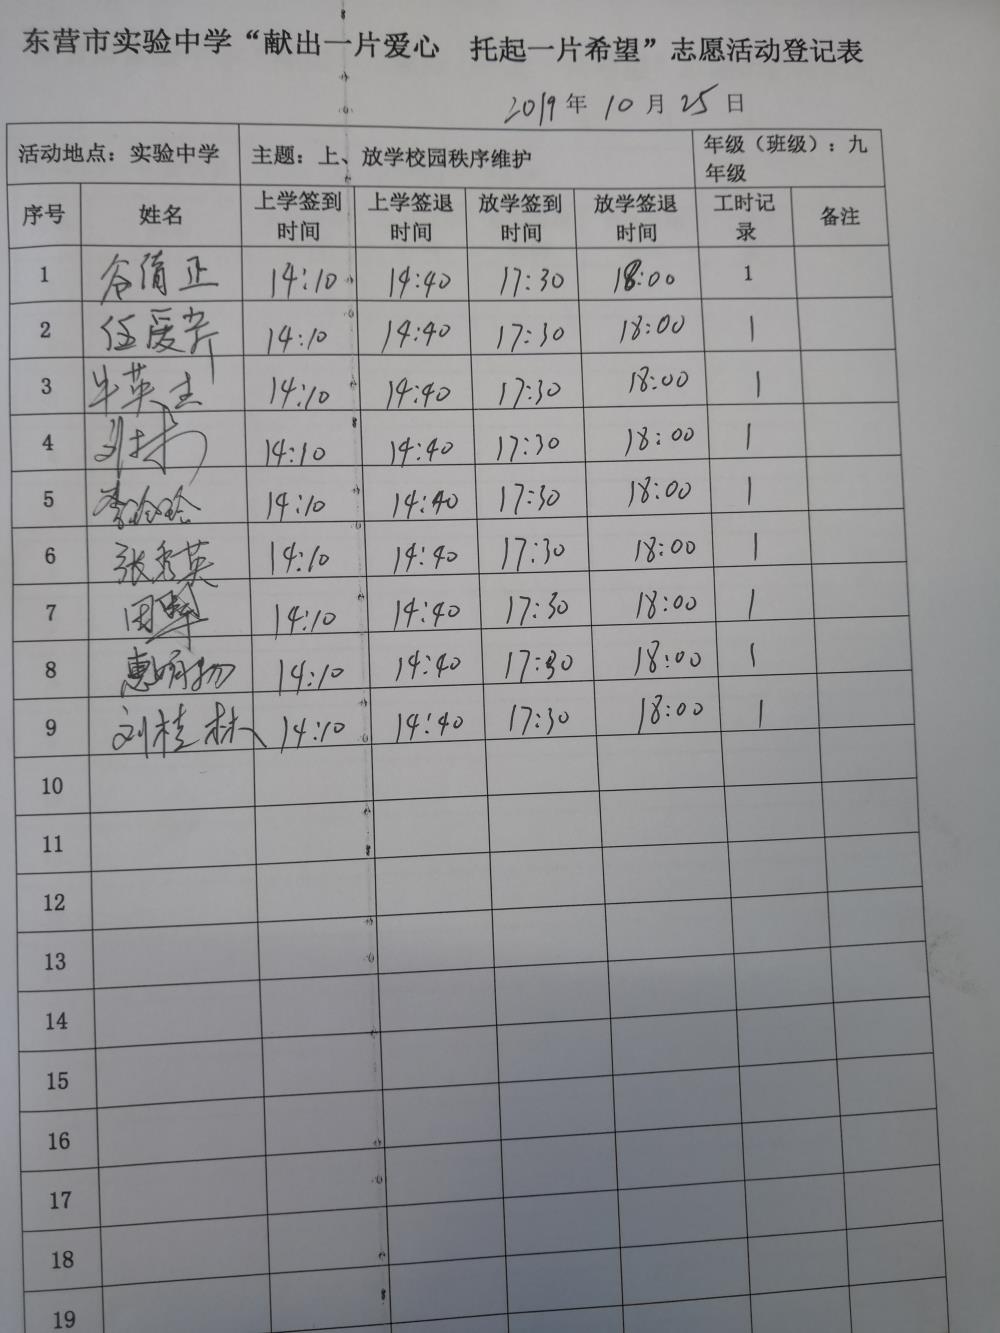 东营市实验中学“献出一片爱心 托起一片希望”志愿活动登记表
2019年10月25日
活动地点：实验中学 主题：上、放学校园秩序维护 年级（班级）：九年级
序号 姓名 上学签到时间 上学签退时间 放学签到时间 放学签退时间 工时记录 备注
1 14:10 14:40 17:30 18:00 1
2 任爱芹 14:10 14:40 17:30 18:00 1
3 牛英 14:10 14:40 17:30 18:00 1
4 刘 14:10 14:40 17:30 18:00 1
5 李玲玲 14:10 14:40 17:30 18:00 1
6 张秀英 14:10 14:40 17:30 18:00 1
7 14:10 14:40 17:30 18:00 1
8 惠 14:10 14:40 17:30 18:00 1
9 刘桂林 14:10 14:40 17:30 18:00 1
10
11
12
13
14
15
16
17
18
19